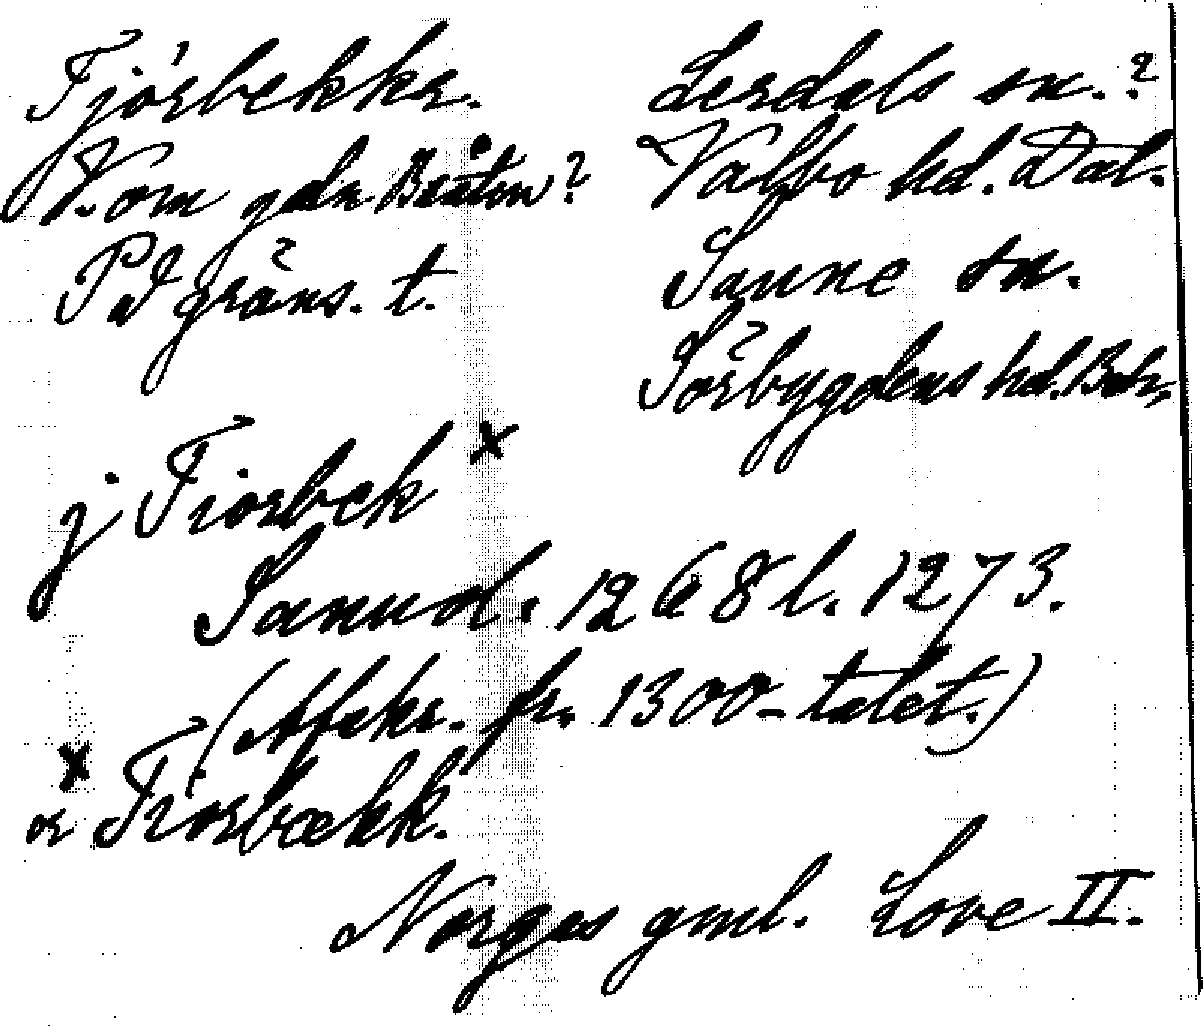 Tjörbekkr. Lerdals sn.?
V. om gdn Bräton? Valbo hd. Dal.
På gräns. t. Sanne sn.
Sörbygdens hd. Boh.
j Tiorbek x
Sannol. 1268 l. 1273.
(Afskr. fr. 1300-talet.)
x or Tiorbækk.
Norges gml. Love II.